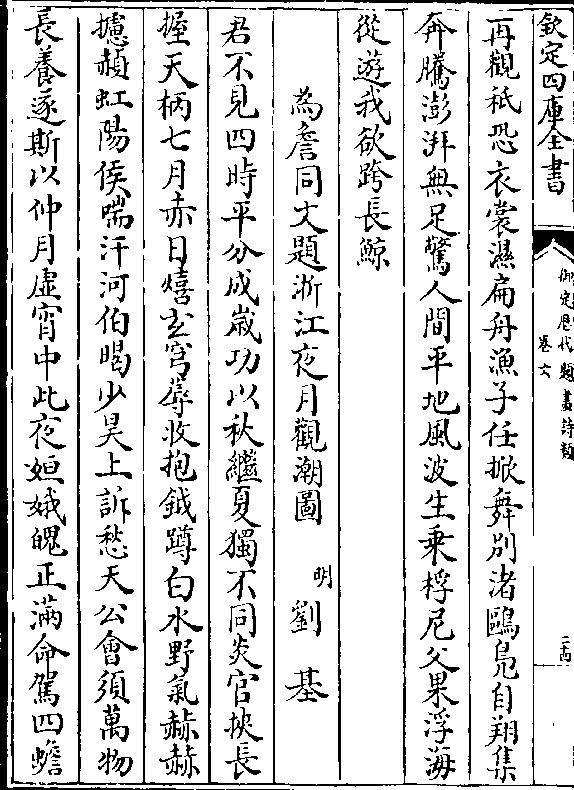 欽定四庫全書
御定歷代題畫詩類
卷六
二十四
再觀秖恐衣裳濕扁舟漁子任掀舞别渚鷗鳬自翔集
奔騰澎湃無足驚人間平地風波生乘桴尼父果浮海
從遊我欲跨長鯨
為詹同文題浙江夜月觀潮圖
明劉基
君不見四時平分成嵗功以秋繼夏獨不同炎官挾長
握天柄七月赤日熺玄穹蓐收抱鉞蹲白水野氣赫赫
攄赬虹陽侯喘汗河伯暍少昊上訴愁天公會須萬物
長養遂斯以仲月虛宵中此夜姮娥魄正滿命駕四蟾